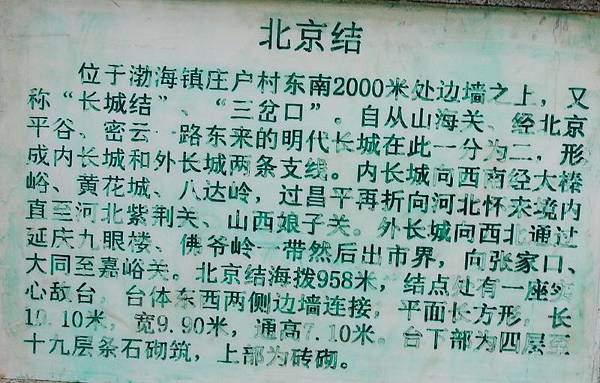 北京结
位于渤海镇庄户村东南2000米处边墙之上，又
称“长城结”、“三岔口”。自从山海关、经北京
平谷、密云一路东来的明代长城在此一分为二，形
成内长城和外长城两条支线。内长城向西南经大榛
峪、黄花城、八达岭，过昌平再折向河北怀来境内
直至河北紫荆关、山西娘子关。外长城向西北通过
延庆九眼楼、佛爷岭一带然后出市界，向张家口、
大同至嘉峪关。北京结海拨958米，结点处有一座实
心敌台，台体东西两侧边墙连接，平面长方形，长
10.10米，宽9.90米，通高7.10米。台下部为四层至
十九层条石砌筑，上部为砖砌。